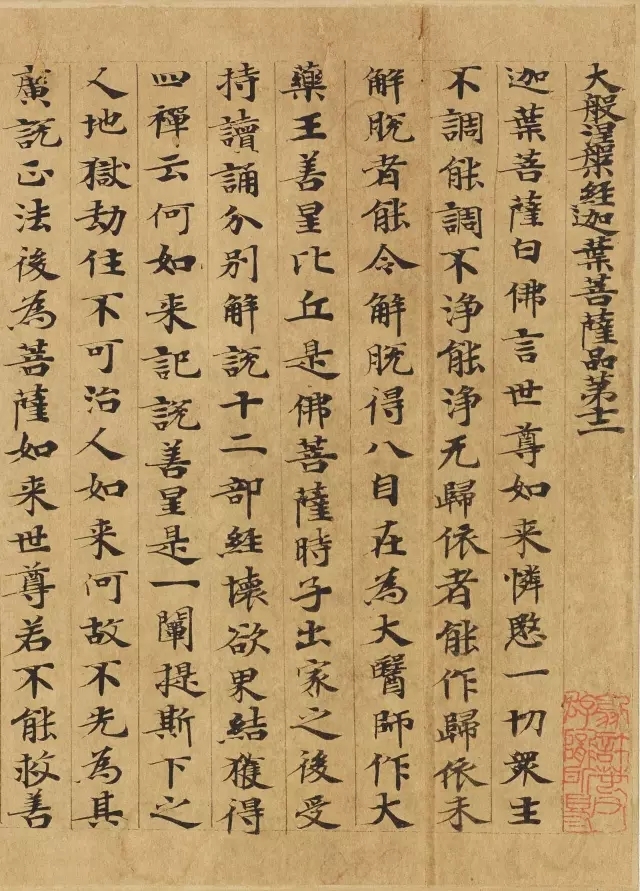 大般涅槃經迦葉菩薩品第十二
迦葉菩薩白佛言世尊如来憐愍一切衆生
不調能調不淨能淨无歸依者能作歸依未
解脱者能令解脱得八自在為大醫師作大
藥王善星比丘是佛菩薩時子出家之後受
持讀誦分别解説十二部經壞欲界結獲得
四禪云何如来記説善星是一闡提斯下之
人地獄劫住不可治人如来何故不先為其
廣説正法後為菩薩如来世尊若不能救善